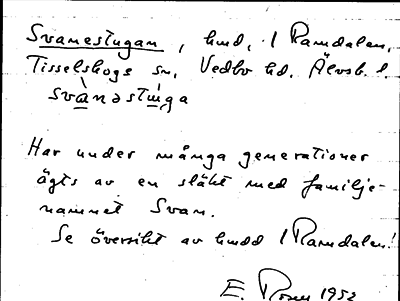 Svanestugan, hmd, I Ramdalen,
Tisselskogs sn, Vedbo hd. Älvsb. l.
svànəstúga
Har under många generationer
ägts av en släkt med familje-
namnet Svan.
Se översikt av hmdd I Ramdalen!
E. 1952